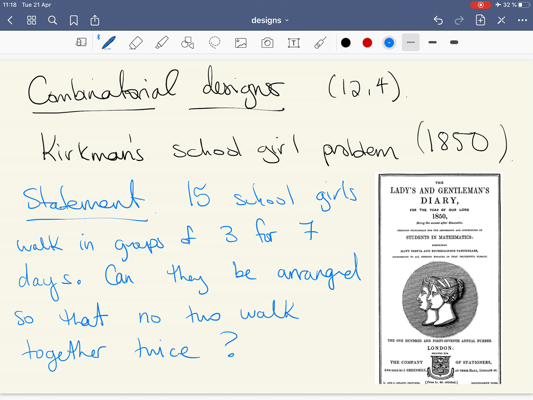 11:18 Tue 21 Apr
32 %
designs
Combinatorial designs (12,4).
Kirkman's school girl problem (1850).
Statement 15 school girls
walk in groups of 3 for 7
days. Can they be arranged
so that no two walk
together twice?
THE
LADY'S AND GENTLEMAN'S
DIARY,
FOR THE YEAR OF OUR LORD
1850,
STUDENTS IN MATHEMATICS:
THE ONE HUNDRED AND FORTY-SEVENTH ANNUAL NUMBER.
LONDON:
THE COMPANY OF STATIONERS,